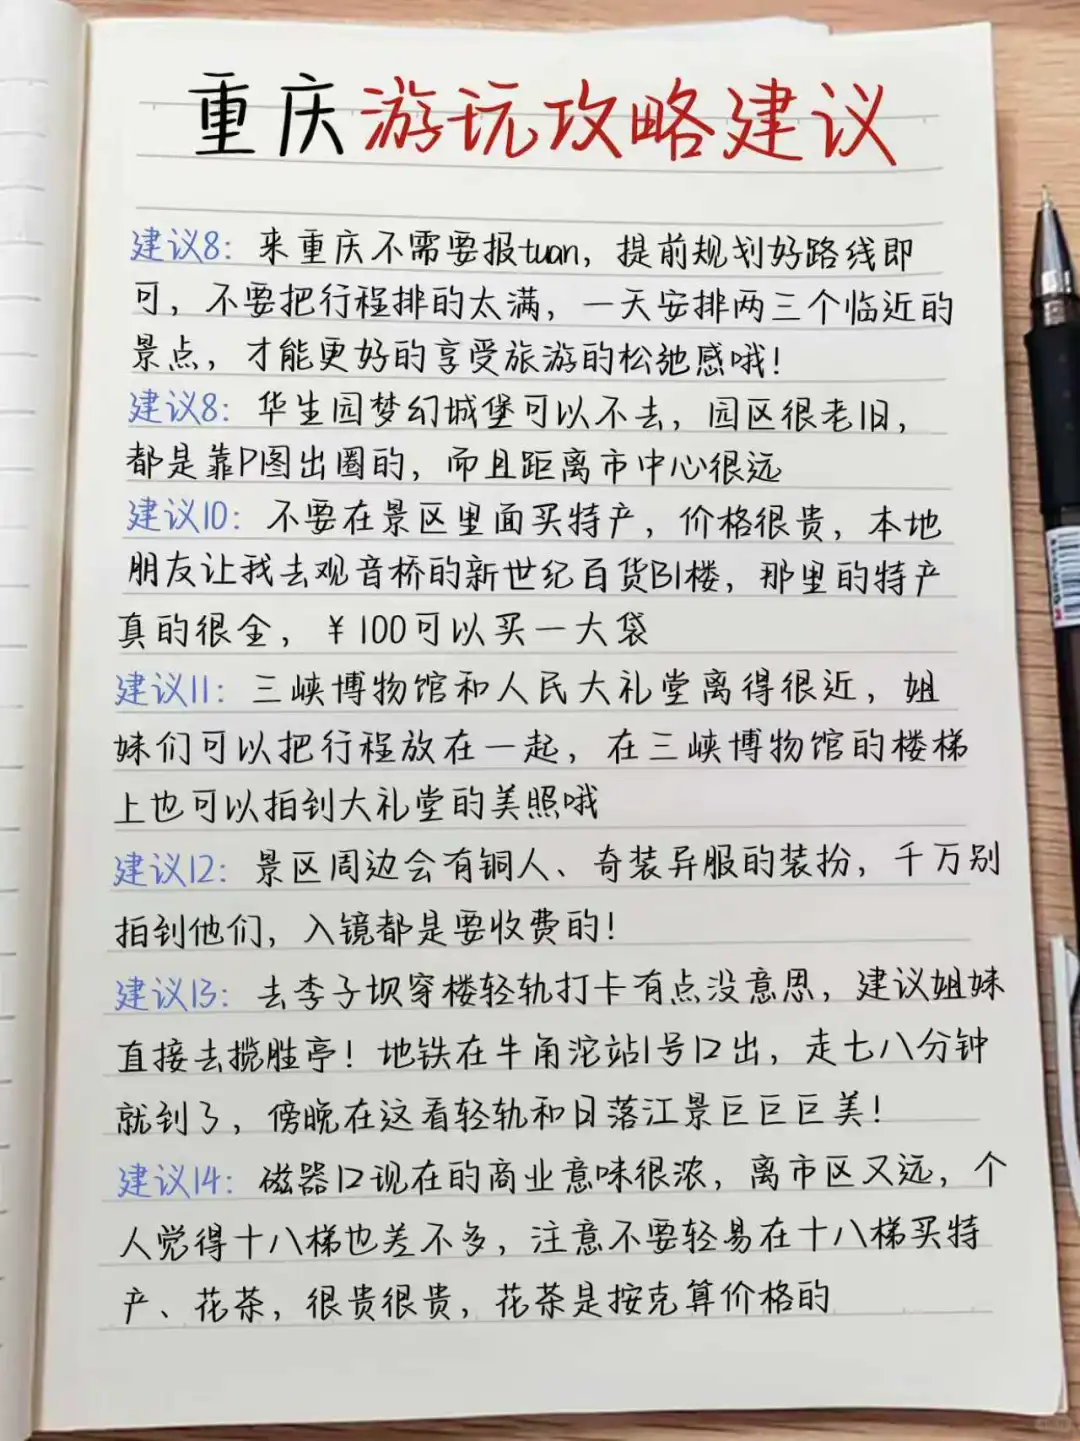 重庆游玩攻略建议
建议8：来重庆不需要报tuan，提前规划好路线即
可，不要把行程排的太满，一天安排两三个临近的
景点，才能更好的享受旅游的松弛感哦！
建议8：华生园梦幻城堡可以不去，园区很老旧，
都是靠P图出圈的，而且距离市中心很远
建议10：不要在景区里面买特产，价格很贵，本地
朋友让我去观音桥的新世纪百货B1楼，那里的特产
真的很全，￥100可以买一大袋
建议11：三峡博物馆和人民大礼堂离得很近，姐
妹们可以把行程放在一起，在三峡博物馆的楼梯
上也可以拍到大礼堂的美照哦
建议12：景区周边会有铜人、奇装异服的装扮，千万别
拍到他们，入镜都是要收费的！
建议13：去李子坝穿楼轻轨打卡有点没意思，建议姐妹
直接去揽胜亭！地铁在牛角沱站1号口出，走七八分钟
就到了，傍晚在这看轻轨和日落江景巨巨巨美！
建议14：磁器口现在的商业意味很浓，离市区又远，个
人觉得十八梯也差不多，注意不要轻易在十八梯买特
产、花茶，很贵很贵，花茶是按克算价格的